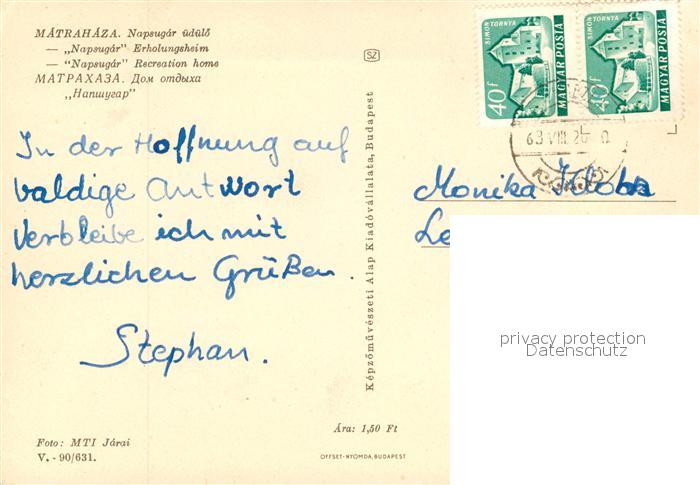 MÁTRAHÁZA. Napsugár üdülő
— „Napsugár” Erholungsheim
— “Napsugár” Recreation home
МАТРАХАЗА. Дом отдыха
„Напшугар”
In der Hoffnung auf
baldige Antwort
verbleibe ich mit
herzlichen Grüßen.
Stephan.
Foto: MTI Járai
V. - 90/631.
SZ
Képzőművészeti Alap Kiadóvállalata, Budapest
Ára: 1,50 Ft
OFFSET-NYOMDA, BUDAPEST
SIMON TORNYA
40 f
MAGYAR POSTA
SIMON TORNYA
40 f
MAGYAR POSTA
63 VIII. 20
Monika
privacy protection
Datenschutz